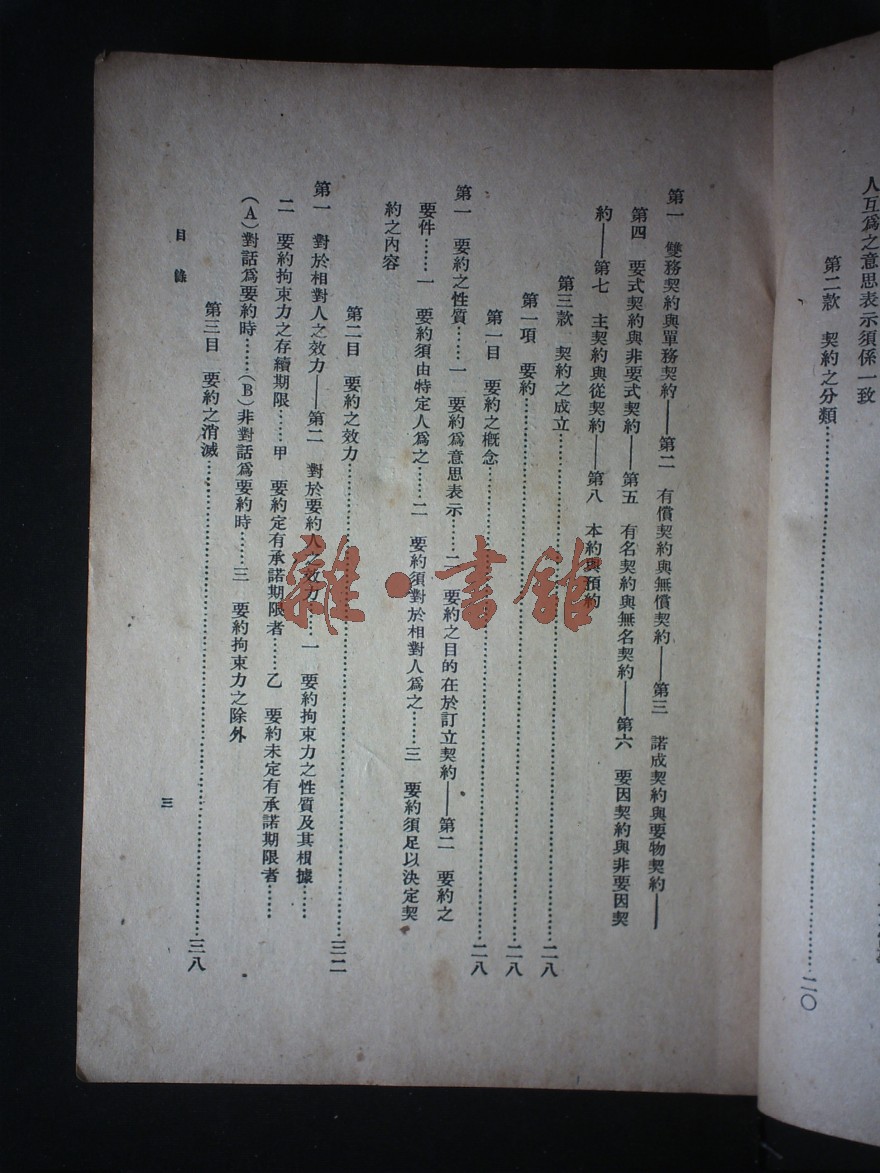 人互爲之意思表示須係一致
第二款　契約之分類……………………二〇
第一　雙務契約與單務契約——第二　有償契約與無償契約——第三　諾成契約與要物契約——
第四　要式契約與非要式契約——第五　有名契約與無名契約——第六　要因契約與非要因契
約——第七　主契約與從契約——第八　本約與預約
第三款　契約之成立……………………二八
第一項　要約……………………二八
第一目　要約之概念……………………二八
第一　要約之性質……一　要約爲意思表示……二　要約之目的在於訂立契約——第二　要約之
要件……一　要約須由特定人爲之……二　要約須對於相對人爲之……三　要約須足以決定契
約之內容
第二目　要約之效力……………………三二
第一　對於相對人之效力——第二　對於要約人之效力……一　要約拘束力之性質及其根據……
二　要約拘束力之存續期限……甲　要約定有承諾期限者……乙　要約未定有承諾期限者……
（A）對話爲要約時……（B）非對話爲要約時……三　要約拘束力之除外
第三目　要約之消滅……………………三八
目錄
三
雜·書館